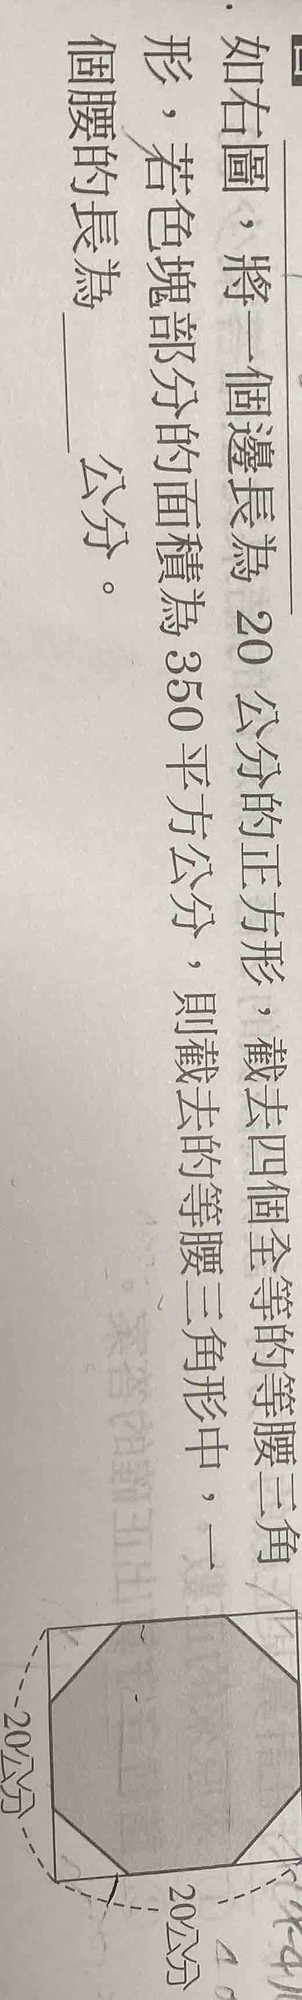 如右圖，將一個邊長為 20 公分的正方形，截去四個全等的等腰三角
形，若色塊部分的面積為 350 平方公分，則截去的等腰三角形中，一
個腰的長為＿＿＿公分。
20公分
20公分